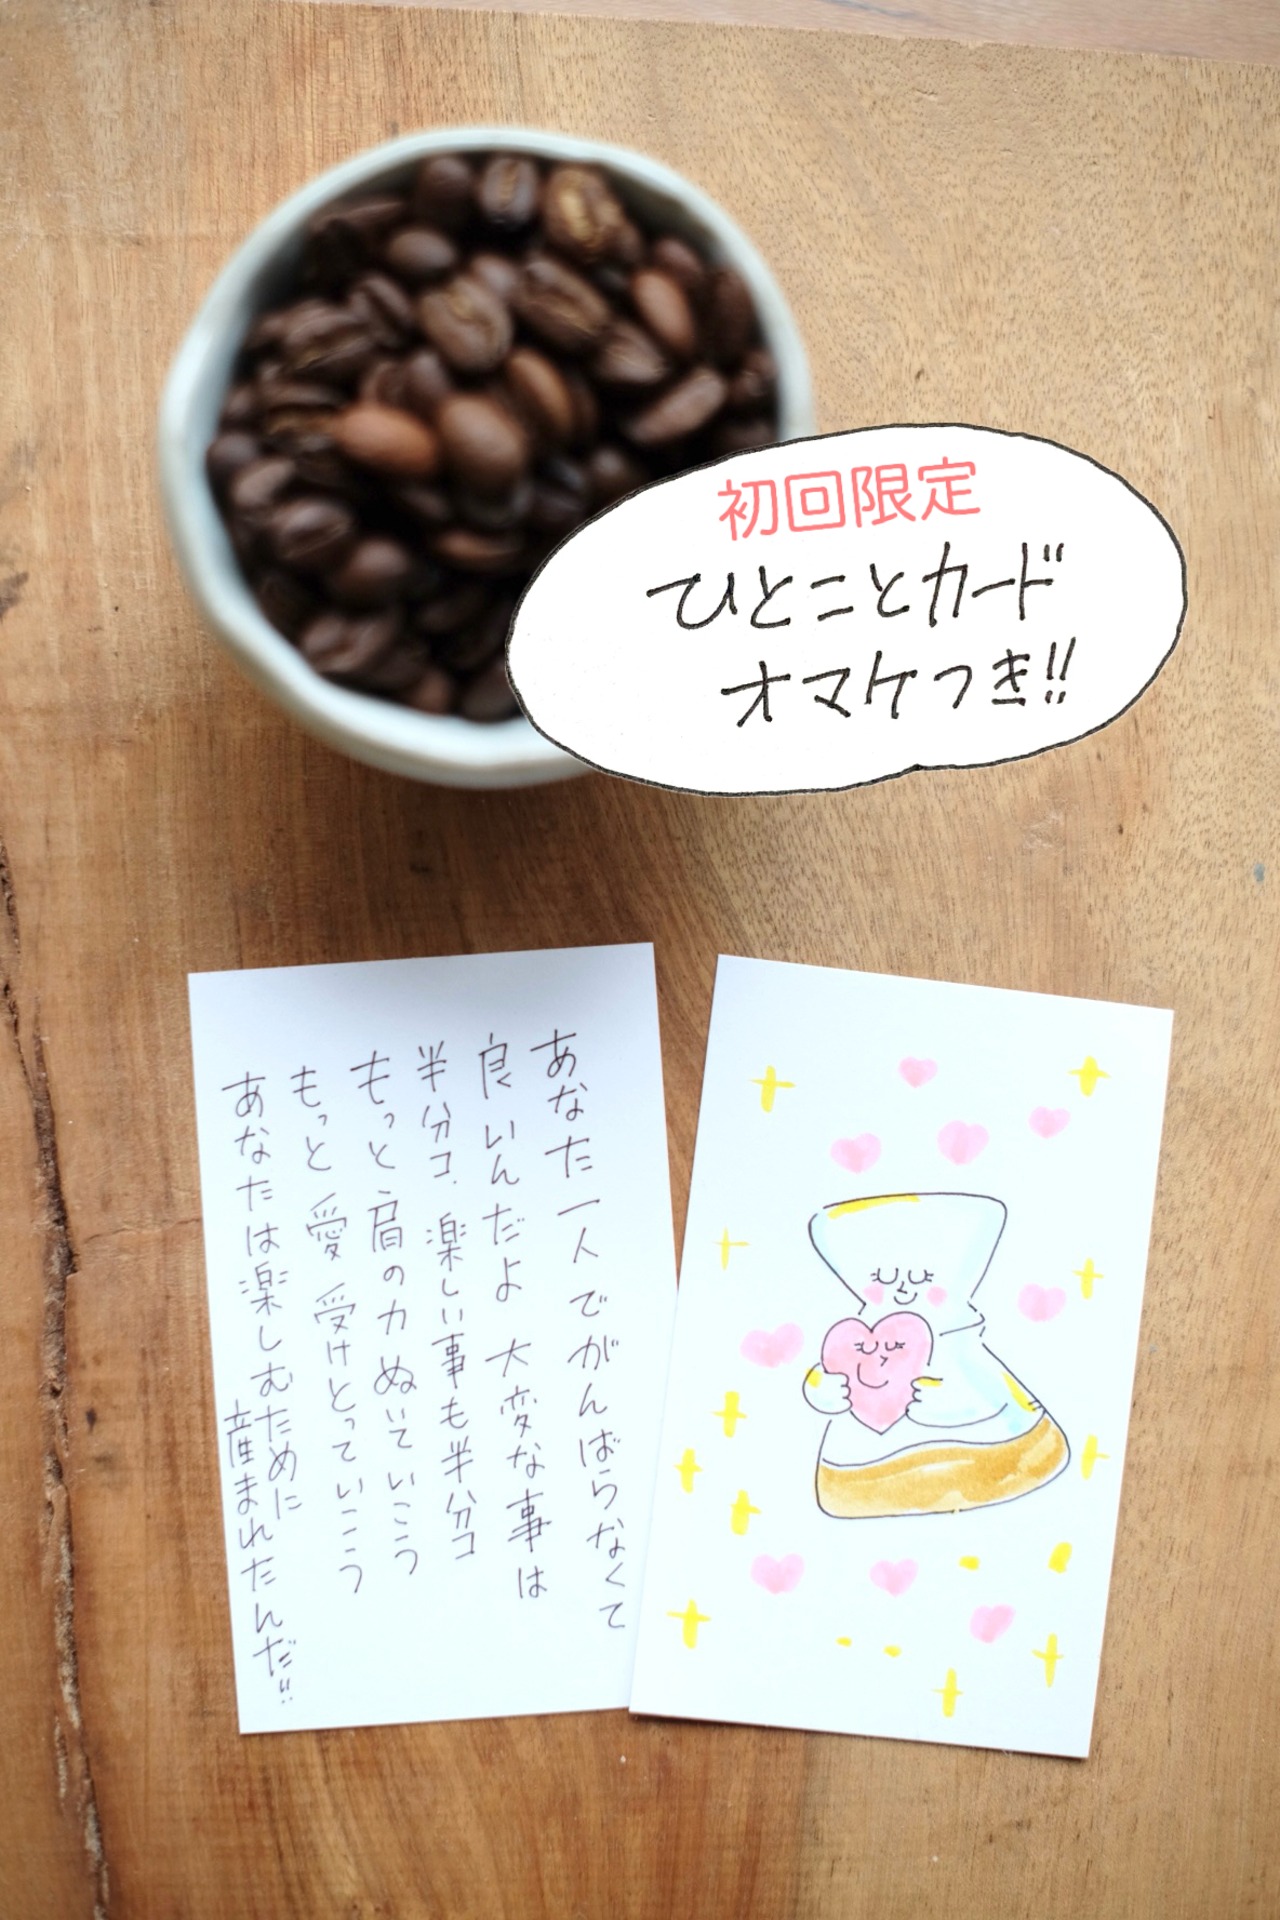 初回限定
ひとことカード
オマケつき!!
あなた一人でがんばらなくて
良いんだよ 大変な事は
半分コ、楽しい事も半分コ
もっと肩の力ぬいていこう
もっと愛受けとっていこう
あなたは楽しむために
産まれたんだ!!